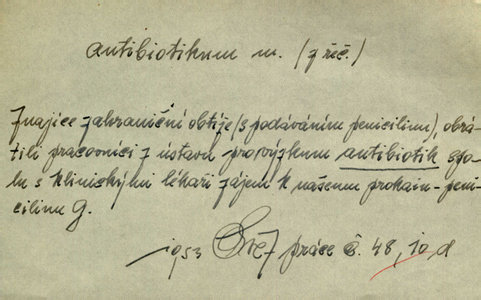 antibiotikum n. (z řeč.)
Znajíce zahraniční obtíže (s podáváním penicilinu), obrá-
tili pracovníci z ústavu pro výzkum antibiotik spo-
lu s klinickými lékaři zájem k našemu prokain-peni-
cilinu G.
1953 Svět práce č. 48, 10, d